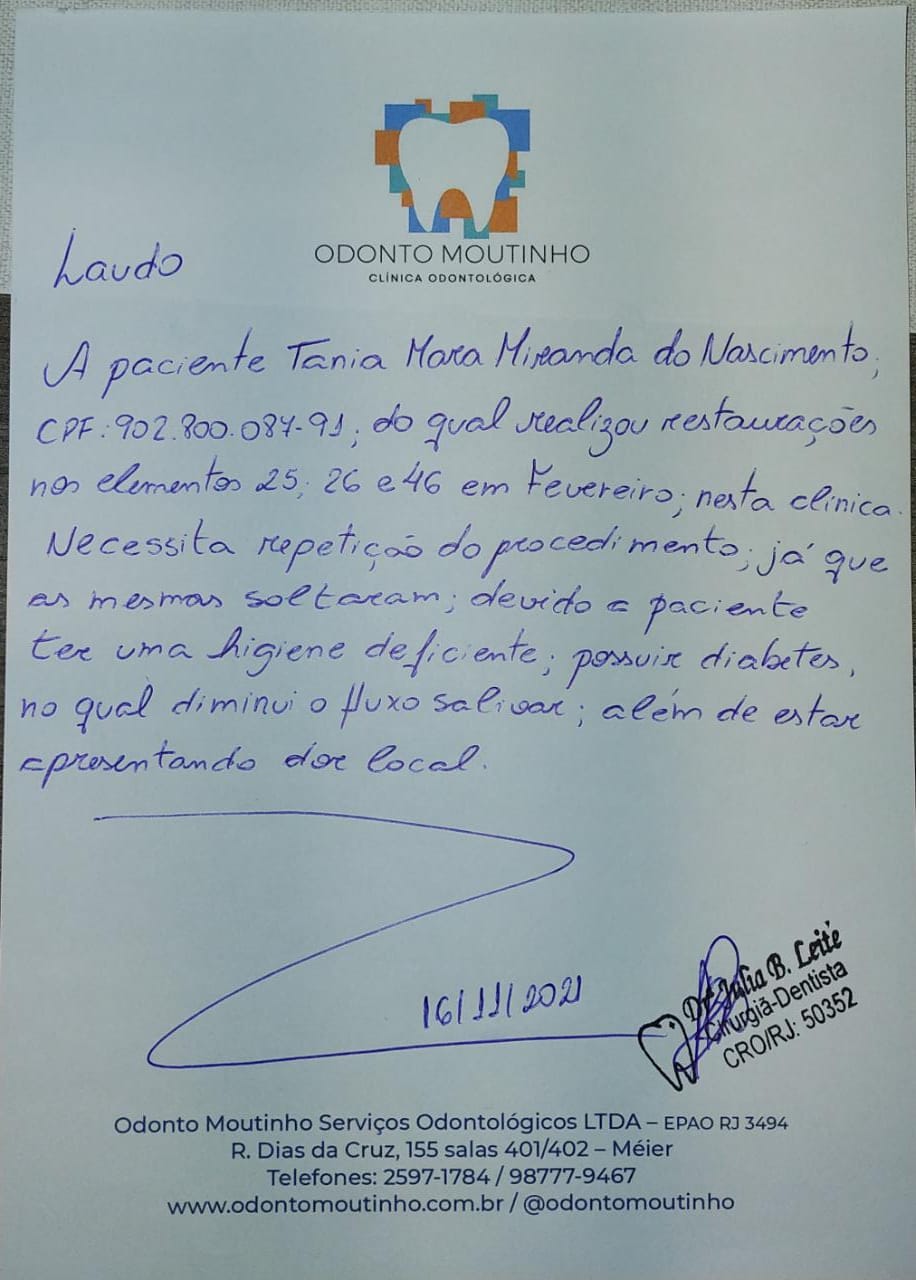 ODONTO MOUTINHO
CLÍNICA ODONTOLÓGICA
Laudo
A paciente Tania Mara Miranda do Nascimento,
CPF: 902.800.087-91, do qual realizou restaurações
nos elementos 25, 26 e 46 em Fevereiro, nesta clínica.
Necessita repetição do procedimento, já que
as mesmas soltaram; devido a paciente
ter uma higiene deficiente; possuir diabetes,
no qual diminui o fluxo salivar; além de estar
apresentando dor local.
16/11/2021
Drª Julia B. Leite
Cirurgiã-Dentista
CRO/RJ: 50352
Odonto Moutinho Serviços Odontológicos LTDA – EPAO RJ 3494
R. Dias da Cruz, 155 salas 401/402 – Méier
Telefones: 2597-1784 / 98777-9467
www.odontomoutinho.com.br / @odontomoutinho